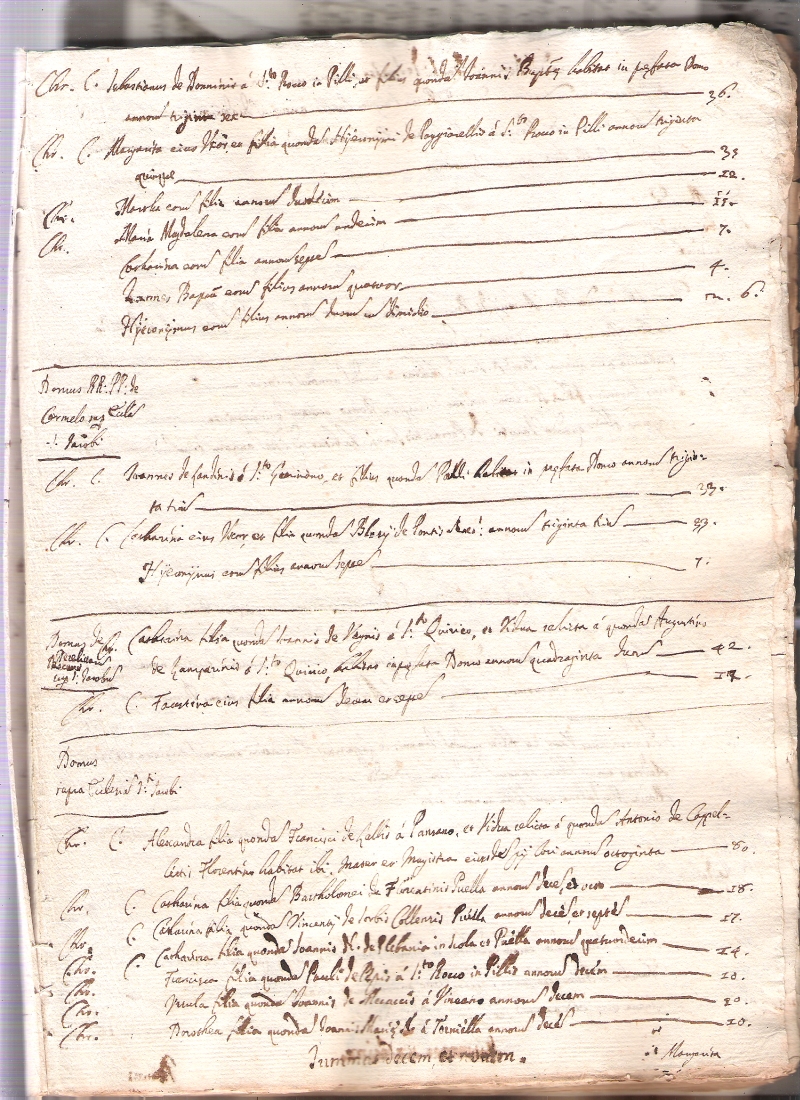 Chr. C. Sebastianus de Dominis á S.to Rocco in Pilli, et filius quondã Ioannis Baptę habitat in pręfata Domo
annorũ triginta sex 36.
Chr. C. Margarita eius Vxor, et filia quondã Hyeronymi de Poggiarellis á S.to Rocco in Pilli annorũ triginta
quinque 35
Chr. Martha eorũ filia annorũ duodecim 12.
Chr. Maria Magdalena eorũ filia annorũ undecim 11.
Catharina eorũ filia annorũ septẽ 7.
Ioannes Bapta eorũ filius annorũ quatuor 4.
Hyeronymus eorũ filius annorũ duorũ cũ dimidio m. 6.
Domus RR. PP. de
Carmelo
S. Iacobi
Chr. C. Ioannes de á S.to Geminiano, et filius quondã Pauli habitat in pręfata Domo annorũ trigin-
ta triũ 33.
Chr. C. Catharina eius Vxor, et filia quondã Blasij de Pontis annorũ triginta triũ 33.
Hyeronymus eorũ filius annorũ septẽ 7.
Domus de
S. Iacobũ
Chr. Catharina filia quondã Ioannis de á S.to Quirico, et Vidua relicta á quondã Augustino
de Zamparinis á S.to Quirico, habitat in pręfata Domo annorũ quadraginta duorũ 42.
Chr. C. Faustina eius filia annorũ decem et septẽ 17.
Domus
supra Ecclesiã S.ti Iacobi
Chr. C. Alexandra filia quondã Francisci de Gallis á Panzano, et Vidua relicta á quondã Antonio de Cappel-
letis Florentino habitat ibi, Mater et Magistra eiusdẽ pij loci annorũ octoginta 80.
Chr. C. Catharina filia quondã Bartholomei de Florentinis Puella annorũ decẽ, et octo 18.
Chr. C. Catharina filia quondã Vincentij de Collensis Puella annorũ decẽ, et septẽ 17.
Chr. C. Catharina filia quondã Ioannis N. de Plebania et Puella annorũ quatuordecim 14.
Chr. Francisca filia quondã Pauli de á S.to Rocco in Pillis annorũ decẽm 10.
Chr. Vrsula filia quondã Ioannis de á annorũ decem 10.
Chr. Dorothea filia quondã Ioannis á Torniella annorũ decẽ 10.
Summa decem, et novem.
Margarita